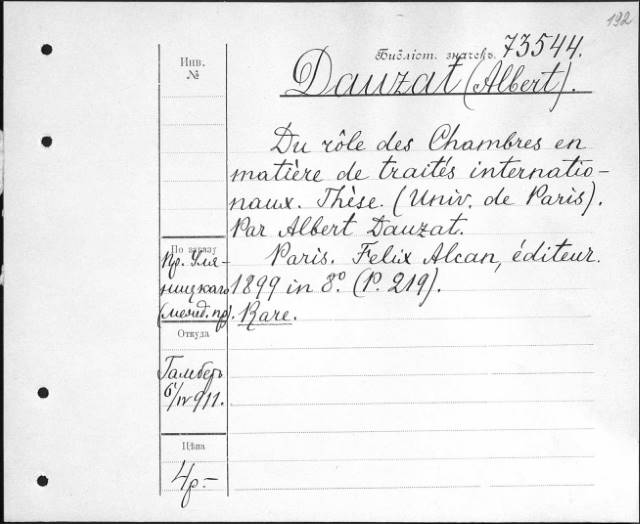 192
Инв.
№
Библіот. значекъ. 73544.
Dauzat (Albert).
Du rôle des Chambres en
matière de traités internatio-
naux. Thèse. (Univ. de Paris).
Par Albert Dauzat.
Paris. Felix Alcan, éditeur.
1899 in 8º. (P. 219).
Rare.
По заказу
Пр. Уля-
ницкаго
(межд. пр).
Откуда
Гамберъ
6/IV 911.
Цѣна
4р.-